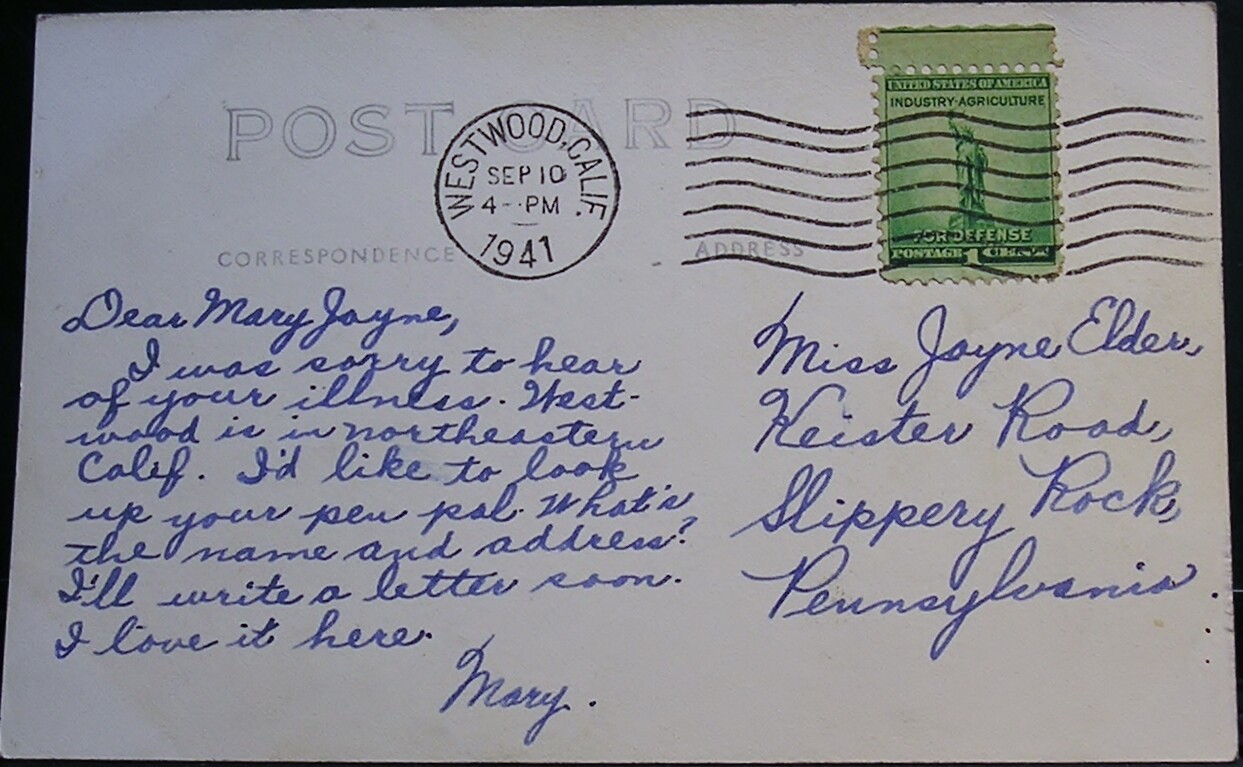 POST CARD
WESTWOOD, CALIF.
SEP 10
4 - PM
1941
UNITED STATES OF AMERICA
INDUSTRY·AGRICULTURE
FOR DEFENSE
POSTAGE 1 CENT
CORRESPONDENCE
ADDRESS
Dear Mary Jayne,
I was sorry to hear
of your illness. West-
wood is in northeastern
Calif. I'd like to look
up your pen pal. What's
the name and address?
I'll write a letter soon.
I love it here.
Mary.
Miss Jayne Elder,
Keister Road,
Slippery Rock,
Pennsylvania.